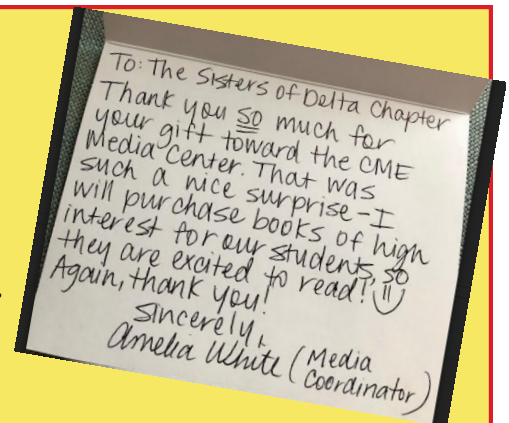 To: The Sisters of Delta Chapter
Thank you so much for
your gift toward the CME
Media Center. That was
such a nice surprise - I
will purchase books of high
interest for our students, so
they are excited to read!
Again, thank you!
Sincerely,
Amelia White (Media
Coordinator)